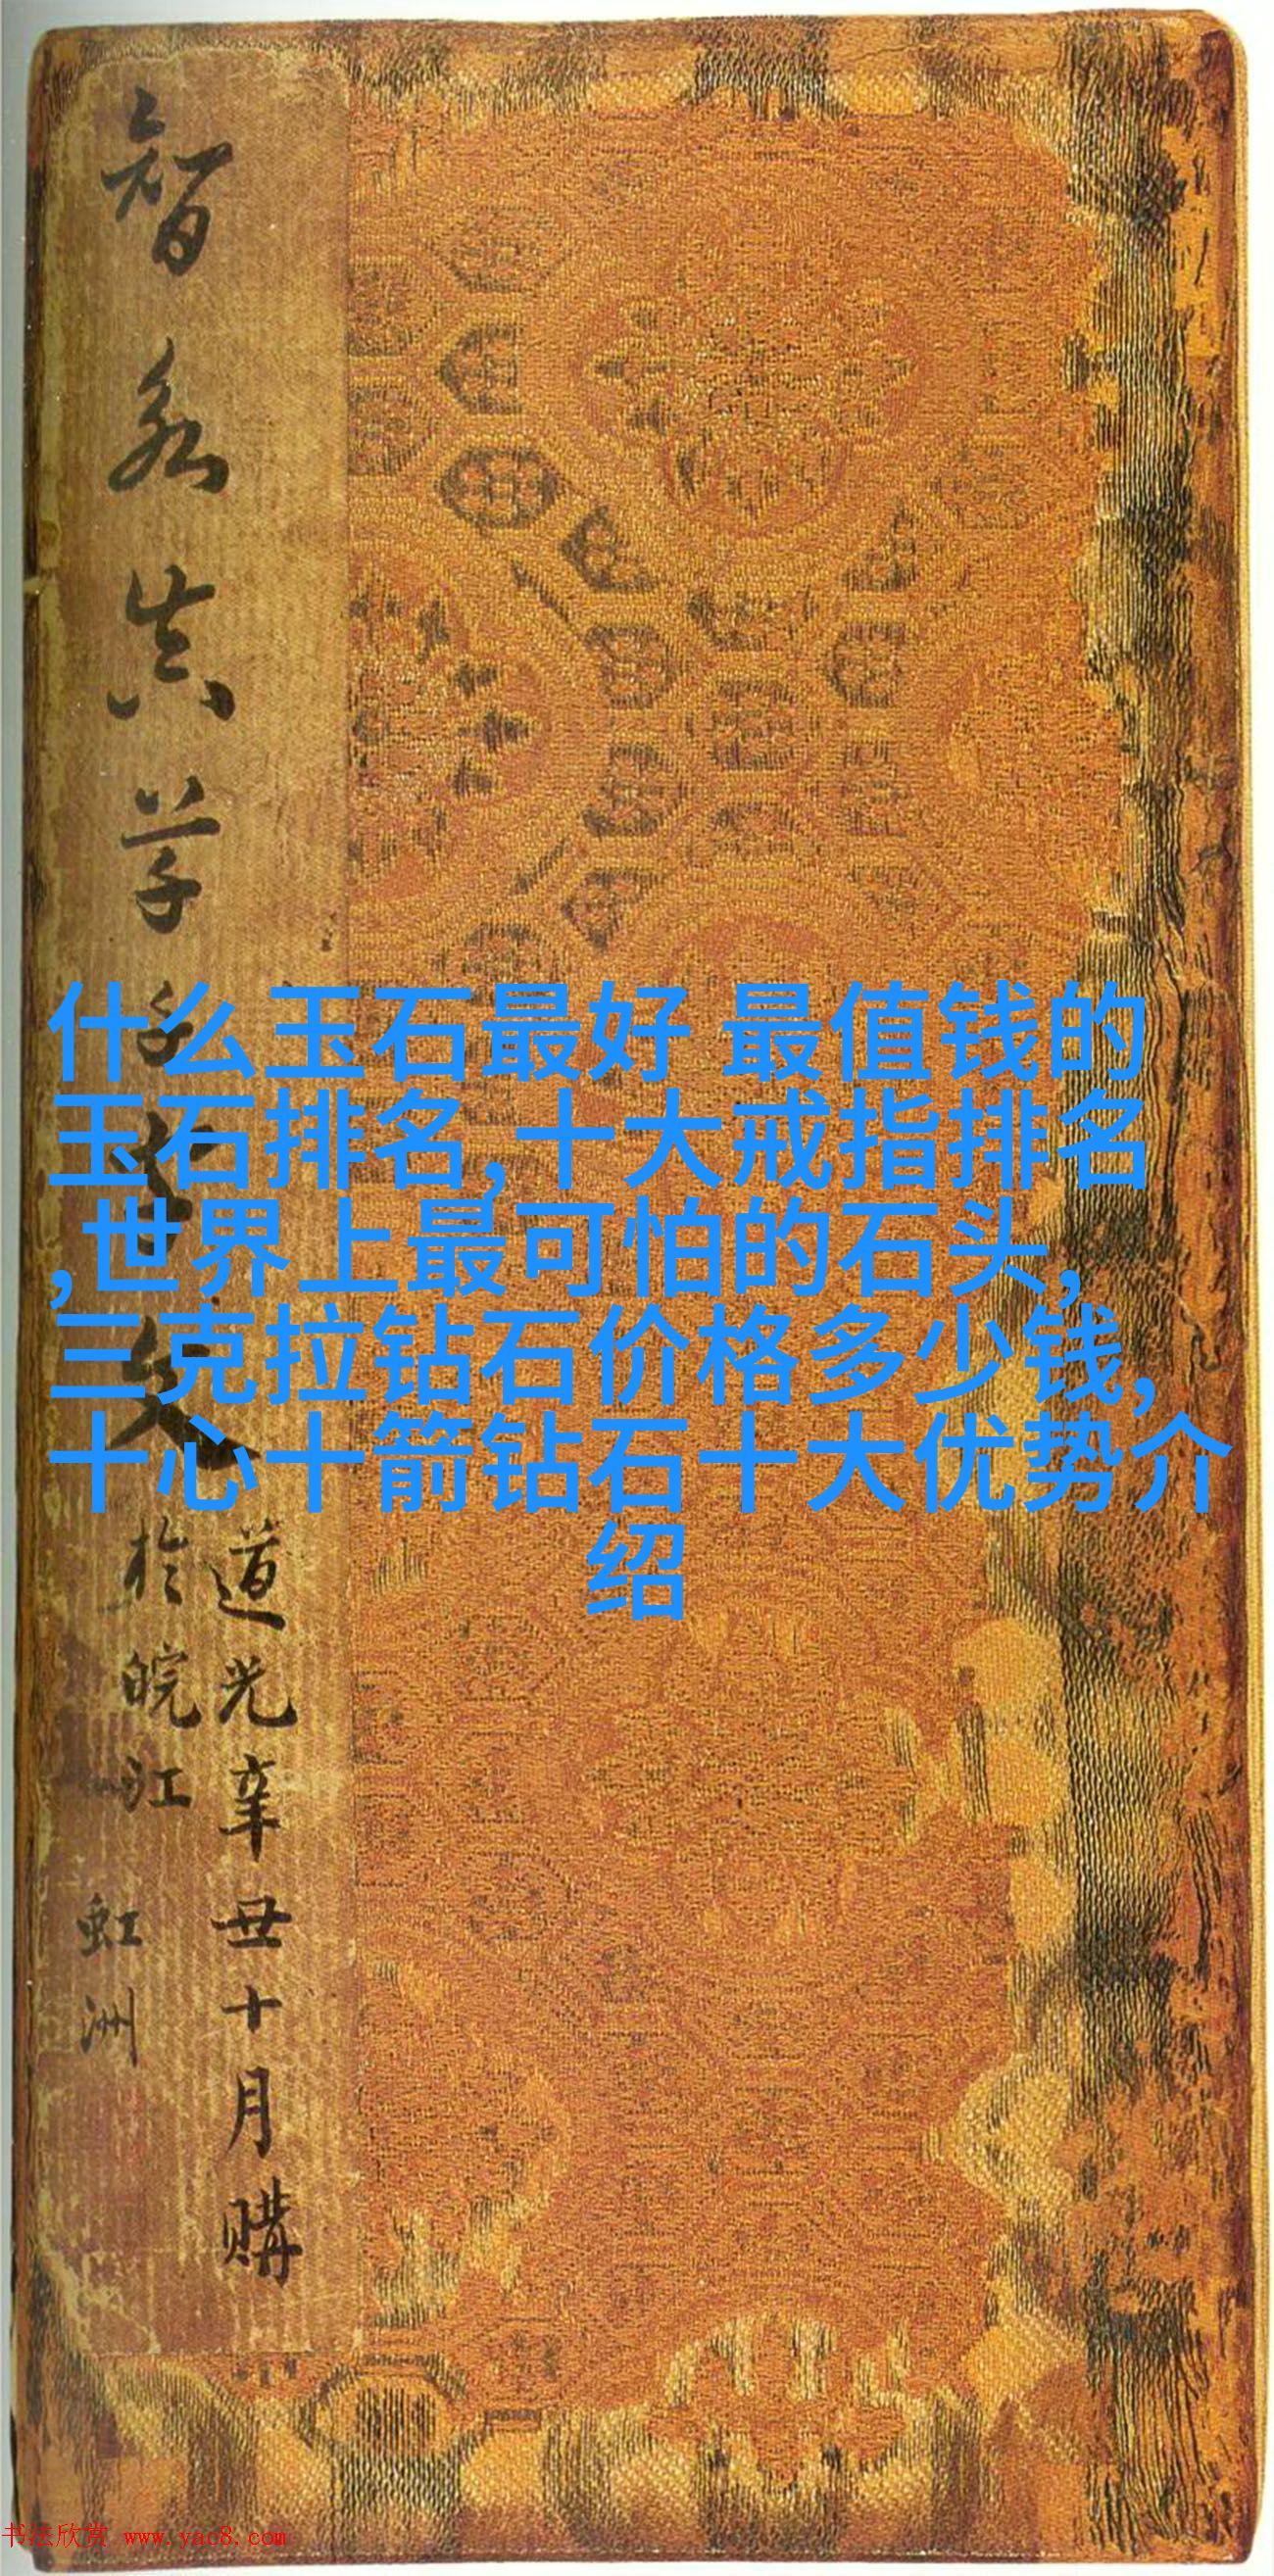 智永真草千
道光辛丑十月購
於皖江
虹洲
什么玉石最好 最值钱的
玉石排名,十大戒指排名
,世界上最可怕的石头,
三克拉钻石价格多少钱,
十心十箭钻石十大优势介
绍
书法欣赏 www.yac8.com